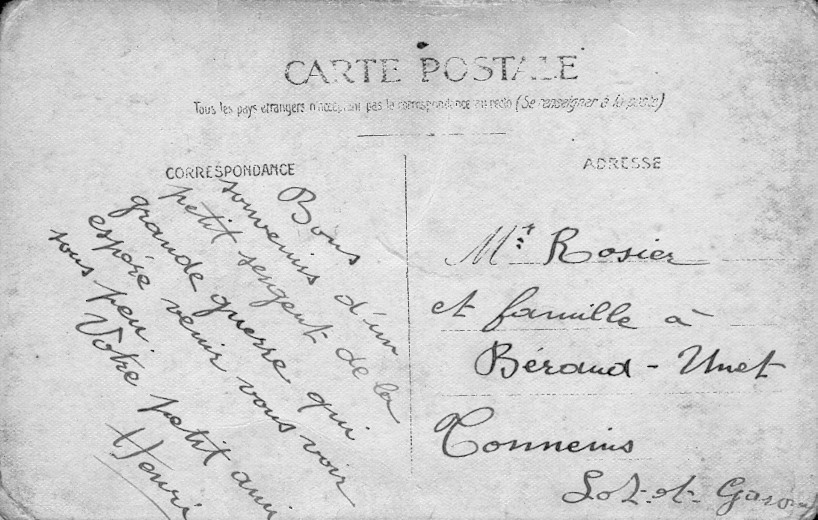 CARTE POSTALE
Tous les pays étrangers n'acceptent pas la correspondance au recto (Se renseigner à la poste)
CORRESPONDANCE
Bons
souvenirs d'un
petit sergent de la
grande guerre qui
espére venir vous voir
sous peu.
Votre petit ami
Henri
ADRESSE
Mr Rosier
et famille à
Béraud - Unet
Tonneins
Lot-et-Garonne